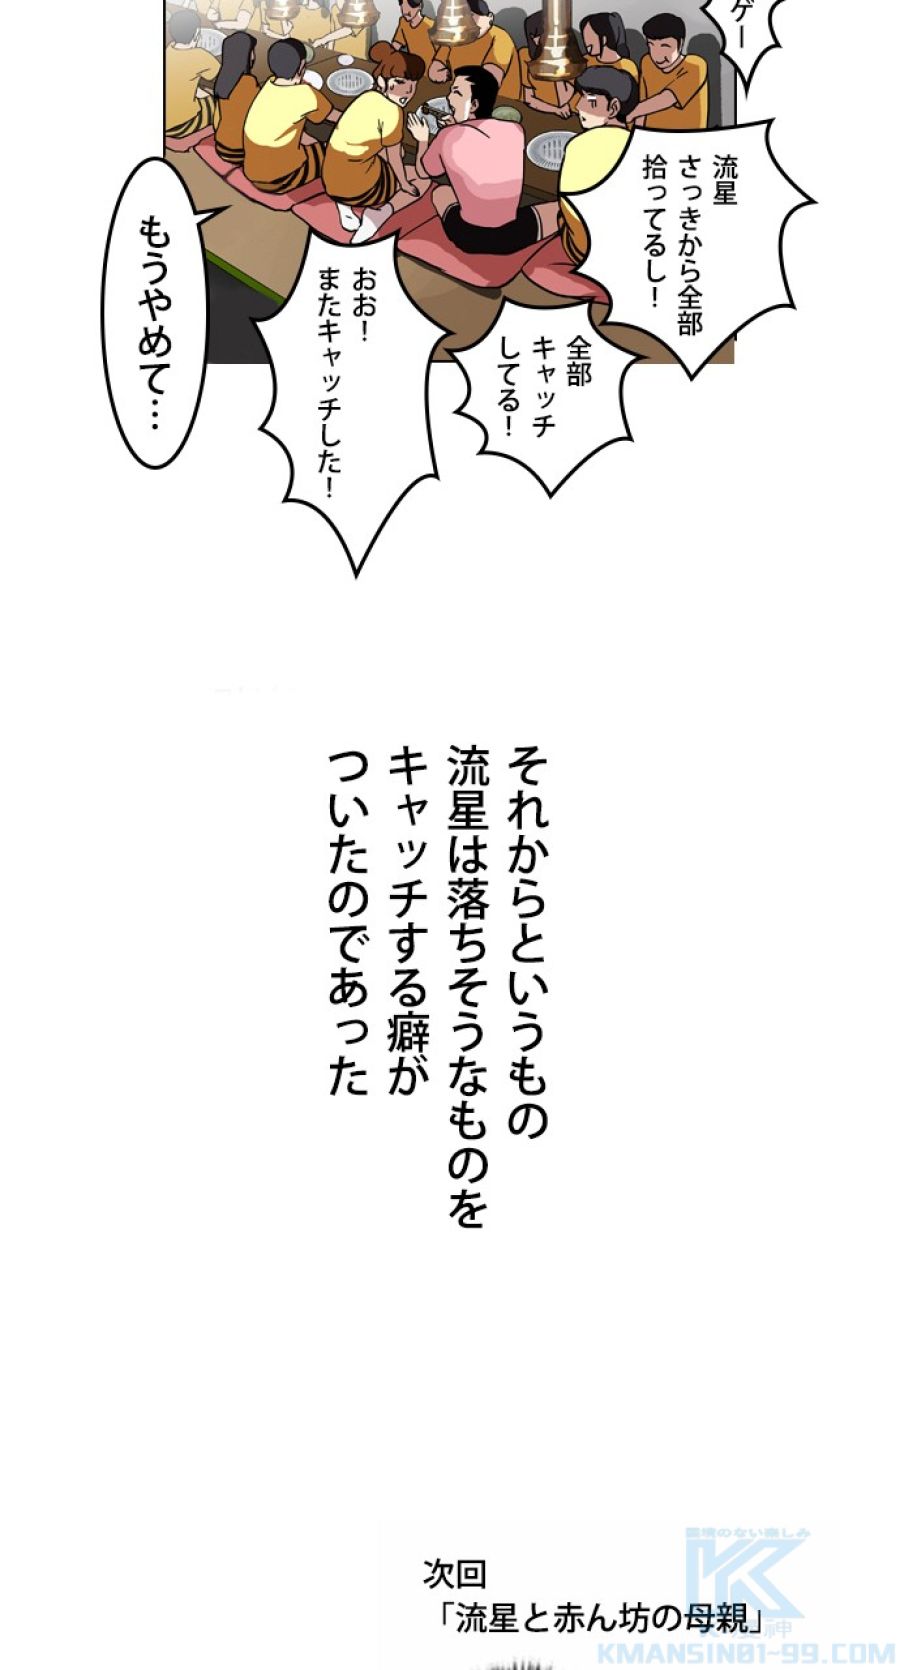 ゲー
流星
さっきから全部
拾ってるし！
全部
キャッチ
してる！
おお！
またキャッチした！
もうやめて…
それからというもの
流星は落ちそうなものを
キャッチする癖が
ついたのであった
次回
「流星と赤ん坊の母親」
国境のない楽しみ
K漫神
KMANSIN01-99.COM